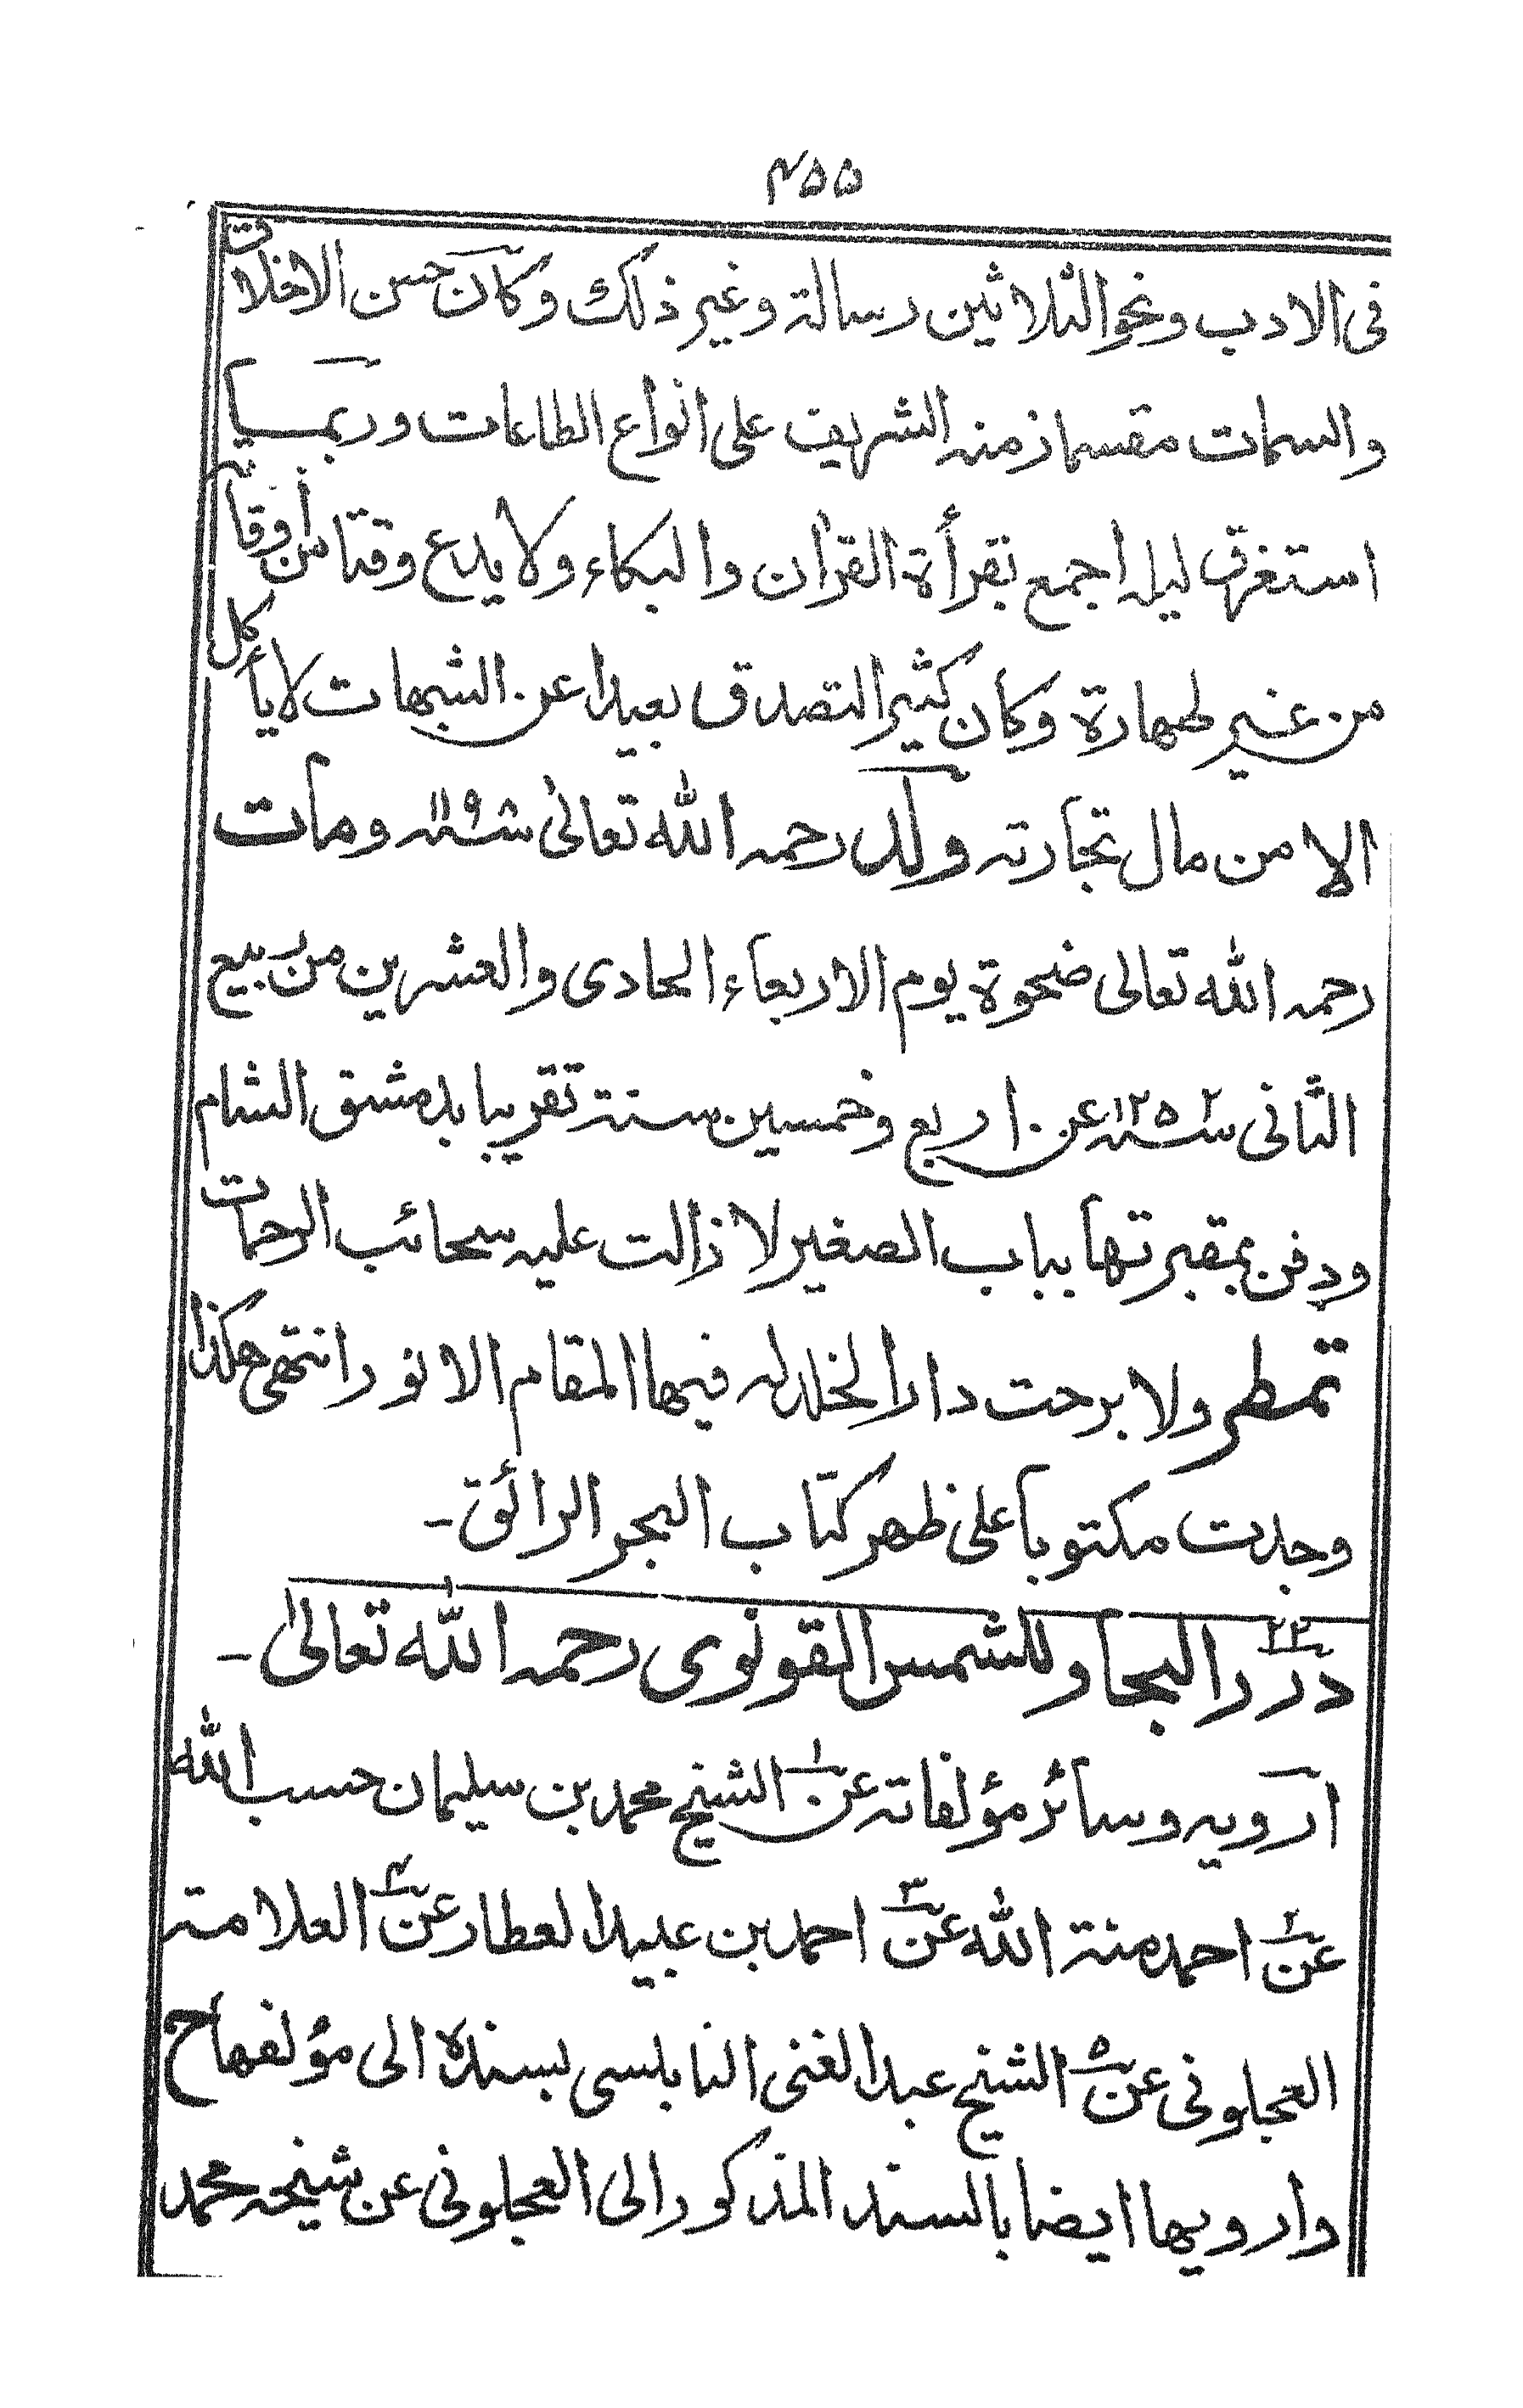 ٤٥٥
فى الادب ونحو الثلاثين رسالة وغير ذلك وكان حسن الاخلاق
والسمات مقسما زمنه الشريف على انواع الطاعات وربما
استغرق ليله اجمع بقرأة القرآن والبكاء ولا يدع وقتا من أوقاته
من غير طهارة وكان كثير التصدق بعيدا عن الشبهات لا يأكل
الا من مال تجارته ولد رحمه الله تعالى سنة ١١٩٨ ومات
رحمه الله تعالى ضحوة يوم الاربعاء الحادى والعشرين من ربيع
الثانى سنة ١٢٥٢ عن اربع وخمسين سنة تقريبا بدمشق الشام
ودفن بمقبرتها بباب الصغير لا زالت عليه سحائب الرحمات
تمطر ولا برحت دار الخلد له فيها المقام الانور انتهى هكذا
وجدت مكتوبا على ظهر كتاب البحر الرائق -
٢٣ درر البحار للشمس القونوى رحمه الله تعالى -
ارويه وسائر مؤلفاته عن ١ الشيخ محمد بن سليمان حسب الله
عن ٢ احمد منة الله عن ٣ احمد بن عبيد العطار عن ٤ العلامة
العجلونى عن ٥ الشيخ عبد الغنى النابلسى بسنده الى مؤلفها ح
وارويها ايضا بالسند المذكور الى العجلونى عن شيخه محمد